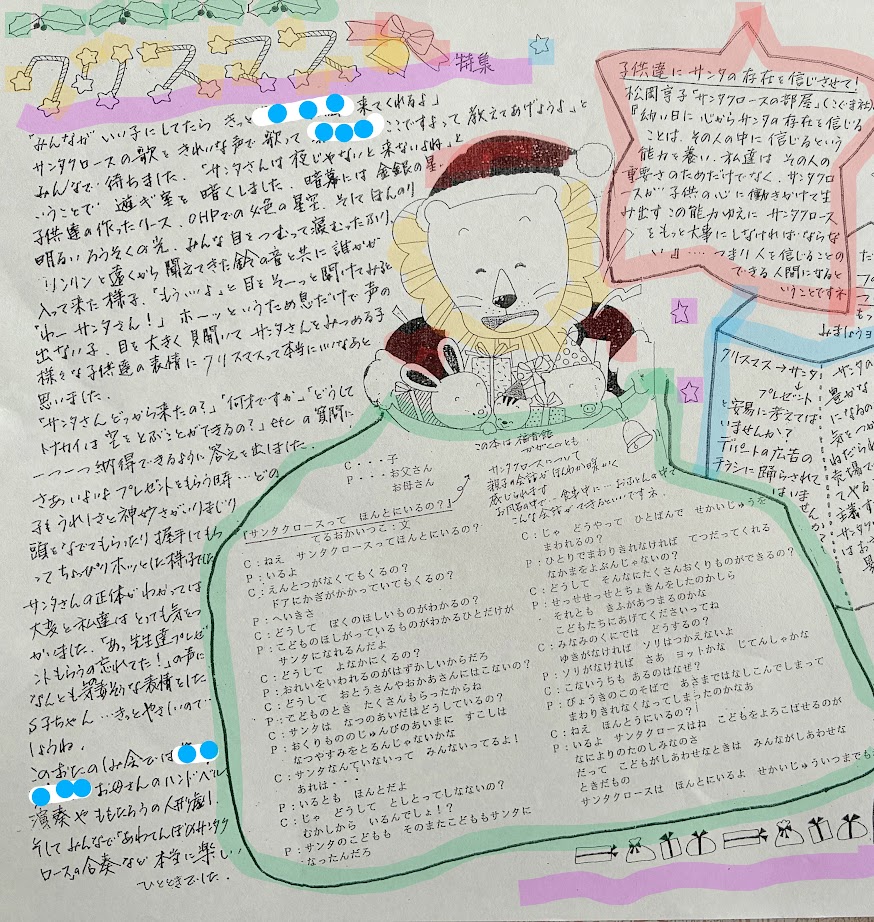 クリスマス 特集
「みんなが いい子にしてたら きっと 来てくれるよ」
サンタクロースの歌を きれいな声で 歌って ここですよって 教えてあげようよ」と
みんなで 待ちました。「サンタさんは 夜じゃないと 来ないよね」と
いうことで 遊ぎ室を 暗くしました。暗幕には 金銀の星、
子供達の作ったリース、OHPでの 色の星空、そして ほんのり
明るい ろうそくの光、みんな 目をつむって 寝むったふり。
リンリンと遠くから 聞えてきた 鈴の音と共に 誰かが
入って来た様子、「もういいよ」と 目を そーっと 開けてみると
「わー サンタさん！」ホーッと いうため息だけで 声の
出ない子、目を大きく 見開いて サンタさんを みつめる子
様々な子供達の 表情に クリスマスって 本当にいいなあと
思いました。
「サンタさん どっから来たの？」「何才ですか」「どうして
トナカイは 空をとぶことができるの？」etc の質問に
一つ一つ 納得できるように 答えを出しました。
さあ いよいよ プレゼントをもらう時…どの
子も うれしさと 神妙さがいりまじり
頭をなでてもらったり 握手してもら
って ちょっぴり ホッとした 様子でした
サンタさんの 正体が わかっては
大変と 私達は とっても 気をつ
かいました。「あっ 先生達 プレゼ
ントもらうの 忘れてた！」の声に
なんとも 気毒そうな 表情をした
S子ちゃん…きっと やさしいので…
しょうね。
このおたのしみ会では
お母さんのハンドベル
演奏や ももたろうの 人形劇、
そして みんなで「あわてんぼのサンタク
ロース」の合奏など 本当に楽しい
ひとときでした。
子供達に サンタの 存在を 信じさせて！
松岡享子「サンタクロースの部屋」(こぐま社)
『幼い日に 心からサンタの 存在を 信じる
ことは、その人の中に 信じるという
能力を 養い、私達は その人の
重要さのためだけでなく、サンタクロ
ースが 子供の心に 働きかけて 生
み出す この能力ゆえに サンタクロース
を もっと 大事に しなければ ならな
い』… つまり 人を 信じることの
できる 人間になると
いうことですネ
みましょうヨ
クリスマス→サンタ
↓
プレゼント
と安易に考えては
いませんか？
デパートの広告の
チラシに 踊らされて
はいま
せんか？
C・・・子
P・・・お父さん
お母さん
この本は 福音館
かがくのとも
サンタクロースについて
親子の会話が ほんわか 暖かく
感じられます
お風呂の中で…食事中に…おふとんの中で
こんな会話が できるといいですネ
『サンタクロースって ほんとにいるの？』
てるおかいつこ：文
C：ねえ サンタクロースってほんとにいるの？
P：いるよ
C：えんとつがなくてもくるの？
ドアにかぎがかかっていてもくるの？
P：へいきさ
C：どうして ぼくのほしいものがわかるの？
P：こどものほしがっているものがわかるひとだけが
サンタになれるんだよ
C：どうして よなかにくるの？
P：おれいをいわれるのがはずかしいからだろ
C：どうして おとうさんやおかあさんにはこないの？
P：こどものとき たくさんもらったからね
C：サンタは なつのあいだはどうしているの？
P：おくりもののじゅんびのあいまに すこしは
なつやすみをとるんじゃないかな
C：サンタなんていないって みんないってるよ！
あれは・・・
P：いるとも ほんとだよ
C：じゃ どうして としとってしなないの？
むかしから いるんでしょ！？
P：サンタのこどもも そのまたこどももサンタに
なったんだろ
C：じゃ どうやって ひとばんで せかいじゅうを
まわれるの？
P：ひとりでまわりきれなければ てつだってくれる
なかまをよぶんじゃないの？
C：どうして そんなにたくさんおくりものができるの？
P：せっせせっせとちょきんをしたのかしら
それとも きふがあつまるのかな
こどもたちにあげてくださいってね
C：みなみのくにでは どうするの？
ゆきがなければ ソリはつかえないよ
P：ソリがなければ さあ ヨットかな じてんしゃかな
C：こないうちも あるのはなぜ？
P：びょうきのこのそばで あさまではなしこんでしまって
まわりきれなくなってしまったのかなあ
C：ねえ ほんとうにいるの？！
P：いるよ サンタクロースはね こどもをよろこばせるのが
なによりのたのしみなのさ
だって こどもがしあわせなときは みんながしあわせな
ときだもの
サンタクロースは ほんとにいるよ せかいじゅういつまでも